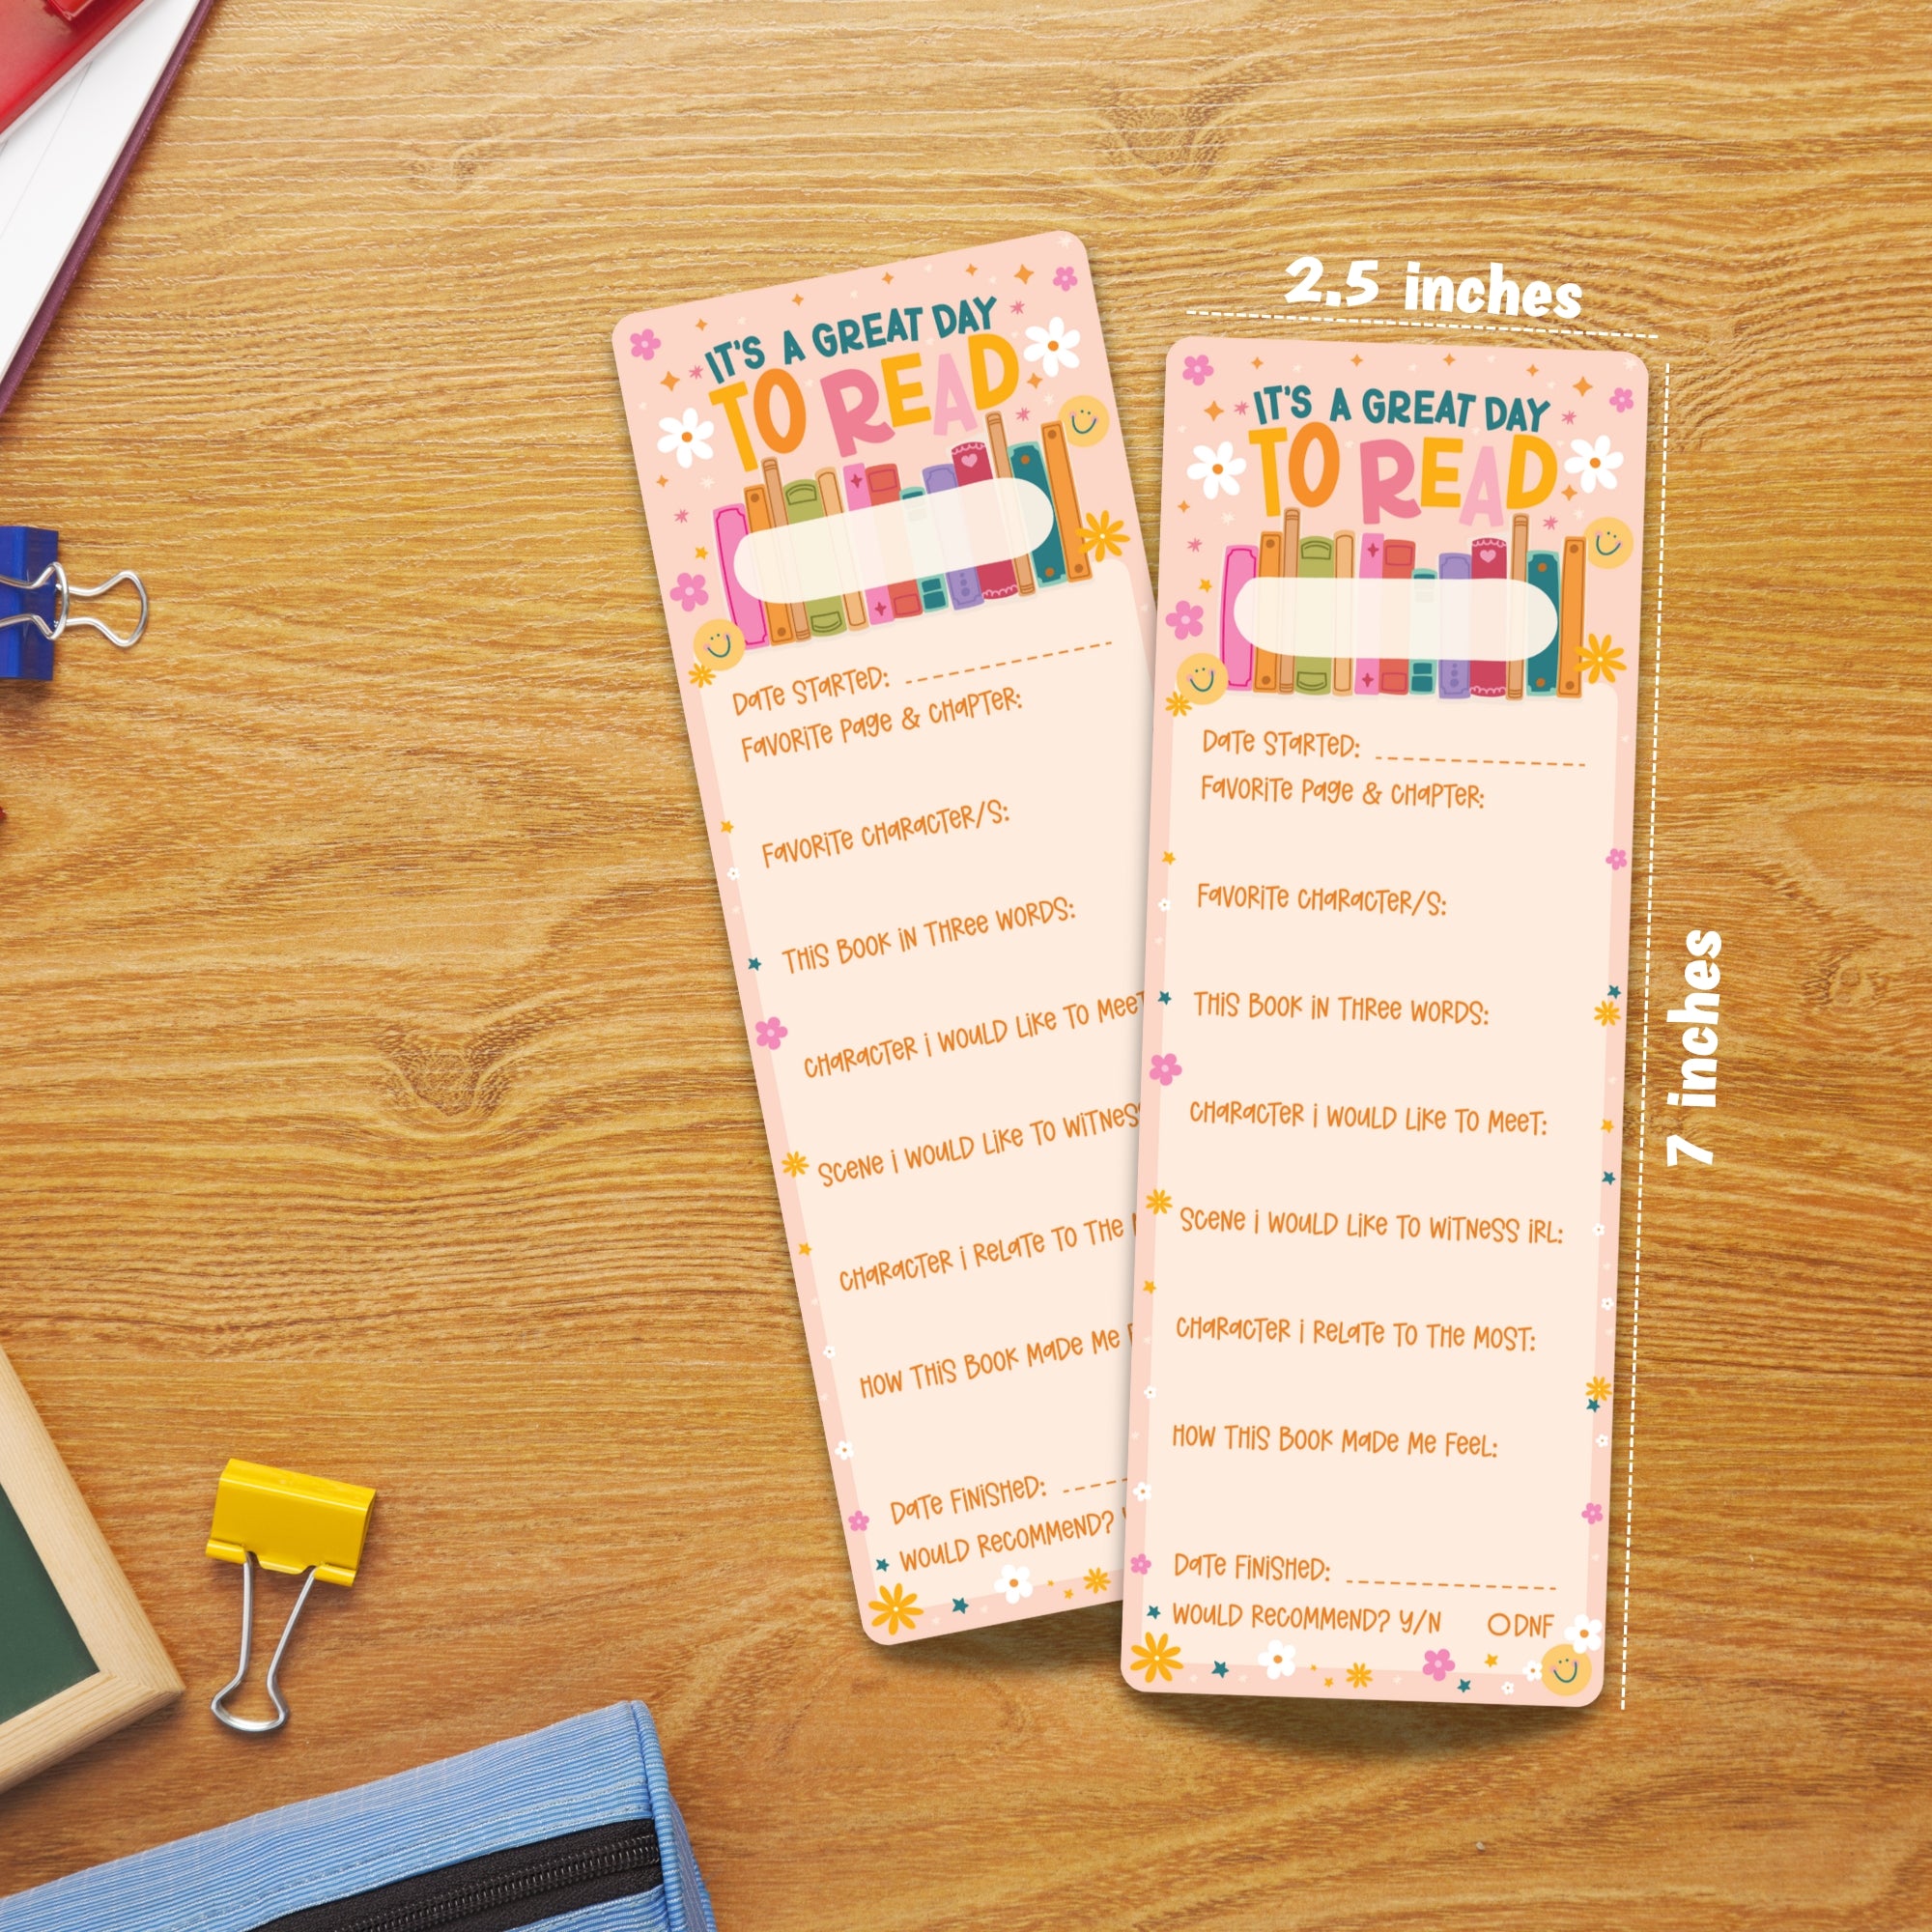 IT'S A GREAT DAY
TO READ
DATE STARTED:
FAVORITE PAGE & CHAPTER:
FAVORITE CHARACTER/S:
THIS BOOK IN THREE WORDS:
CHARACTER I WOULD LIKE TO MEET
SCENE I WOULD LIKE TO WITNESS
CHARACTER I RELATE TO THE
HOW THIS BOOK MADE ME
DATE FINISHED:
WOULD RECOMMEND?
2.5 inches
IT'S A GREAT DAY
TO READ
DATE STARTED:
FAVORITE PAGE & CHAPTER:
FAVORITE CHARACTER/S:
THIS BOOK IN THREE WORDS:
CHARACTER I WOULD LIKE TO MEET:
SCENE I WOULD LIKE TO WITNESS IRL:
CHARACTER I RELATE TO THE MOST:
HOW THIS BOOK MADE ME FEEL:
DATE FINISHED:
WOULD RECOMMEND? Y/N DNF
7 inches